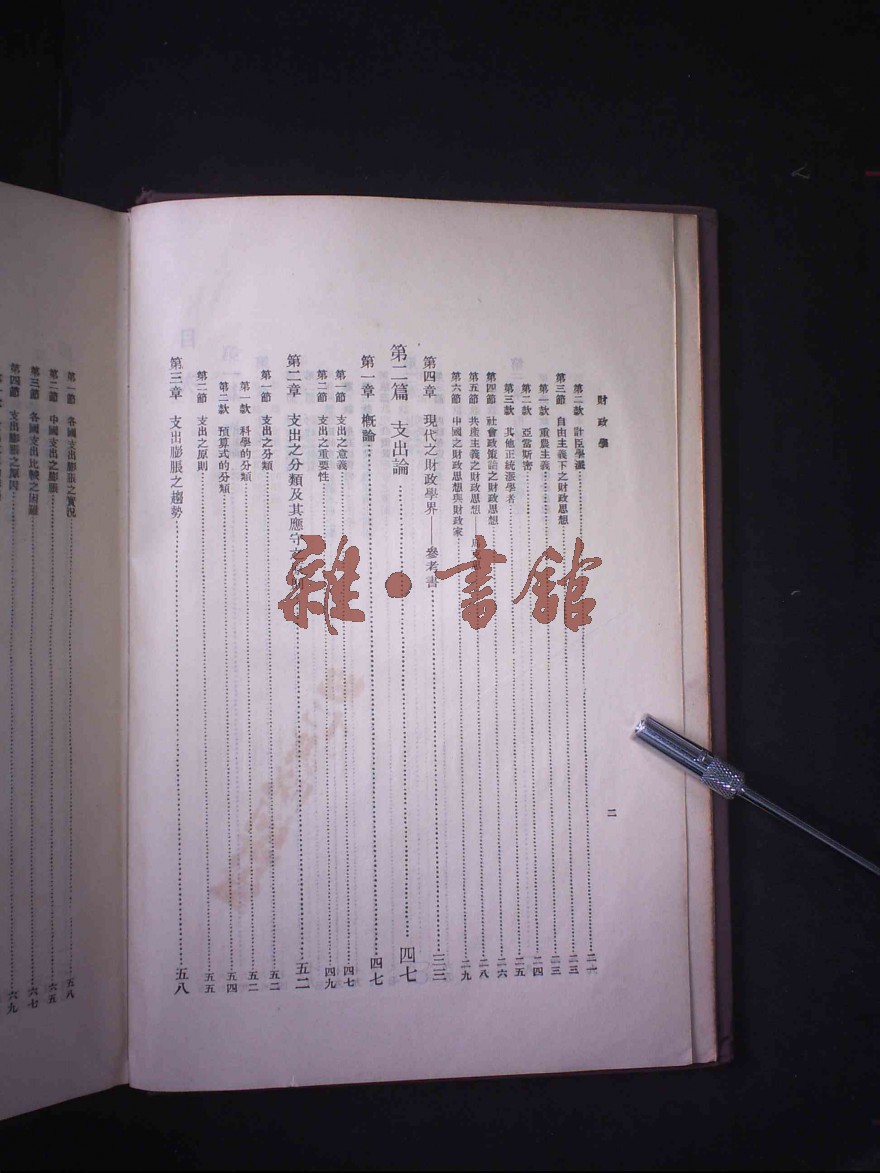 財政學
二
第二款 計臣學派 二一
第三節 自由主義下之財政思想 二三
第一款 重農主義 二三
第二款 亞當斯密 二四
第三款 其他正統派學者 二五
第四節 社會政策論之財政思想 二六
第五節 共產主義之財政思想—— 二八
第六節 中國之財政思想與財政家 二九
第四章 現代之財政學界——參考書 三三
第二篇 支出論 四七
第一章 概論 四七
第一節 支出之意義 四七
第二節 支出之重要性 四九
第二章 支出之分類及其應守 五二
第一節 支出之分類 五二
第一款 科學的分類 五二
第二款 預算式的分類 五四
第二節 支出之原則 五五
第三章 支出膨脹之趨勢 五八
第一節 各國支出膨脹之實況 五八
第二節 中國支出之膨脹 六五
第三節 各國支出比較之困難 六七
第四節 支出膨脹之原因 六九
雜·書館